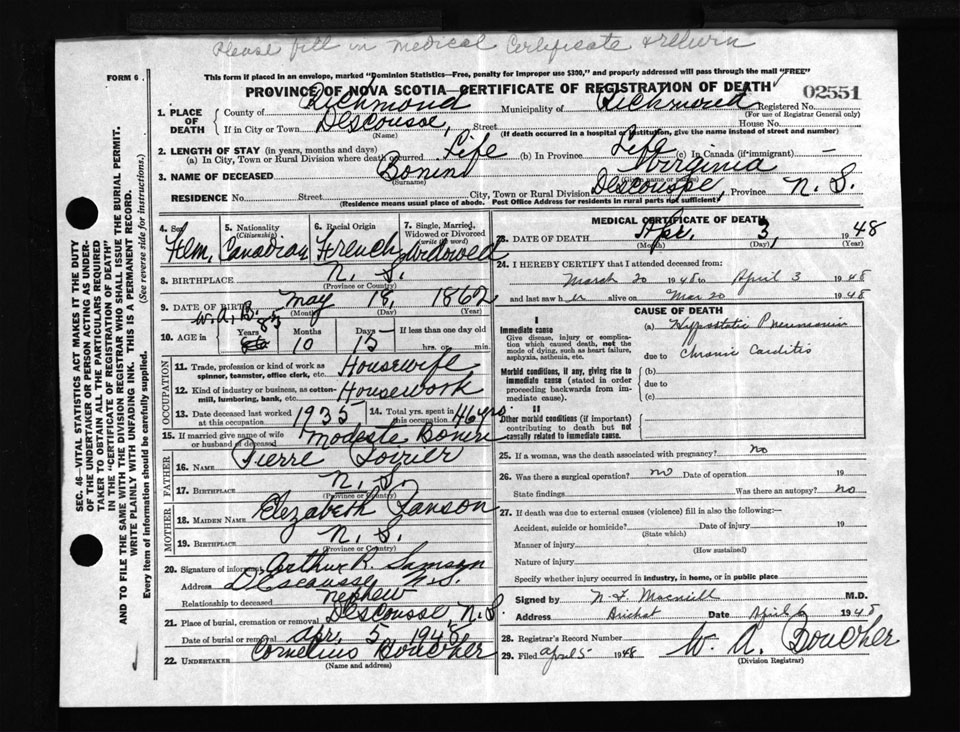 Please fill in medical Certificate & return
FORM 6
This form if placed in an envelope, marked "Dominion Statistics—Free, penalty for improper use $300," and properly addressed will pass through the mail "FREE"
PROVINCE OF NOVA SCOTIA—CERTIFICATE OF REGISTRATION OF DEATH
02551
1. PLACE OF DEATH County of Richmond Municipality of Richmond Registered No.
(For use of Registrar General only)
If in City or Town Descousse, Street House No.
(Name) (If death occurred in a hospital or institution, give the name instead of street and number)
2. LENGTH OF STAY (in years, months and days)
(a) In City, Town or Rural Division where death occurred Life (b) In Province Life (c) In Canada (if immigrant) —
3. NAME OF DECEASED Bonin Virginia
(Surname) (Given name or names)
RESIDENCE No. Street City, Town or Rural Division Descousse, Province N. S.
(Residence means usual place of abode. Post Office Address for residents in rural parts not sufficient)
4. Sex 5. Nationality (Citizenship) 6. Racial Origin 7. Single, Married, Widowed or Divorced (write the word)
Fem, Canadian French Widowed
8. BIRTHPLACE N. S.
(Province or Country)
9. DATE OF BIRTH May 18, 1862
(Month) (Day) (Year)
W. A. B. 85
10. AGE in Years Months 10 Days 15 If less than one day old hrs. or min.
OCCUPATION
11. Trade, profession or kind of work as spinner, teamster, office clerk, etc. Housewife
12. Kind of industry or business, as cotton-mill, lumbering, bank, etc. Housework
13. Date deceased last worked at this occupation 1935 14. Total yrs. spent in this occupation 46 yrs.
15. If married give name of wife or husband of deceased Modeste Bonin
FATHER
16. NAME Pierre Poirier
17. BIRTHPLACE N. S.
(Province or Country)
MOTHER
18. MAIDEN NAME Elezabeth
19. BIRTHPLACE N. S.
(Province or Country)
20. Signature of informant Arthur R. Samson
Address Descousse N.S.
Relationship to deceased nephew
21. Place of burial, cremation or removal Descousse, N. S.
Date of burial or removal Apr. 5 1948
22. UNDERTAKER Cornelius Boucher
(Name and address)
MEDICAL CERTIFICATE OF DEATH
23. DATE OF DEATH Apr. 3, 1948
(Month) (Day) (Year)
24. I HEREBY CERTIFY that I attended deceased from:
March 20 1948 to April 3 1948
and last saw her alive on Mar 20 1948
CAUSE OF DEATH
I
Immediate cause
Give disease, injury or complication which caused death, not the mode of dying, such as heart failure, asphyxia, asthenia, etc.
(a) Hypostatic Pneumonia
due to Chronic Carditis
Morbid conditions, if any, giving rise to immediate cause (stated in order proceeding backwards from immediate cause).
(b)
due to
(c)
II
Other morbid conditions (if important) contributing to death but not causally related to immediate cause.
25. If a woman, was the death associated with pregnancy? no
26. Was there a surgical operation? no Date of operation 19
State findings Was there an autopsy? no
27. If death was due to external causes (violence) fill in also the following:—
Accident, suicide or homicide? Date of injury 19
(State which)
Manner of injury
(How sustained)
Nature of injury
Specify whether injury occurred in industry, in home, or in public place
Signed by M.D.
Address Arichat Date April 6 1948
28. Registrar's Record Number
29. Filed April 5 1948 W. A. Boucher
(Division Registrar)
SEC. 46—VITAL STATISTICS ACT MAKES IT THE DUTY
OF THE UNDERTAKER OR PERSON ACTING AS UNDER-
TAKER TO OBTAIN ALL THE PARTICULARS REQUIRED
IN THE "CERTIFICATE OF REGISTRATION OF DEATH"
AND TO FILE THE SAME WITH THE DIVISION REGISTRAR WHO SHALL ISSUE THE BURIAL PERMIT.
WRITE PLAINLY WITH UNFADING INK. THIS IS A PERMANENT RECORD.
Every item of information should be carefully supplied. (See reverse side for instructions.)